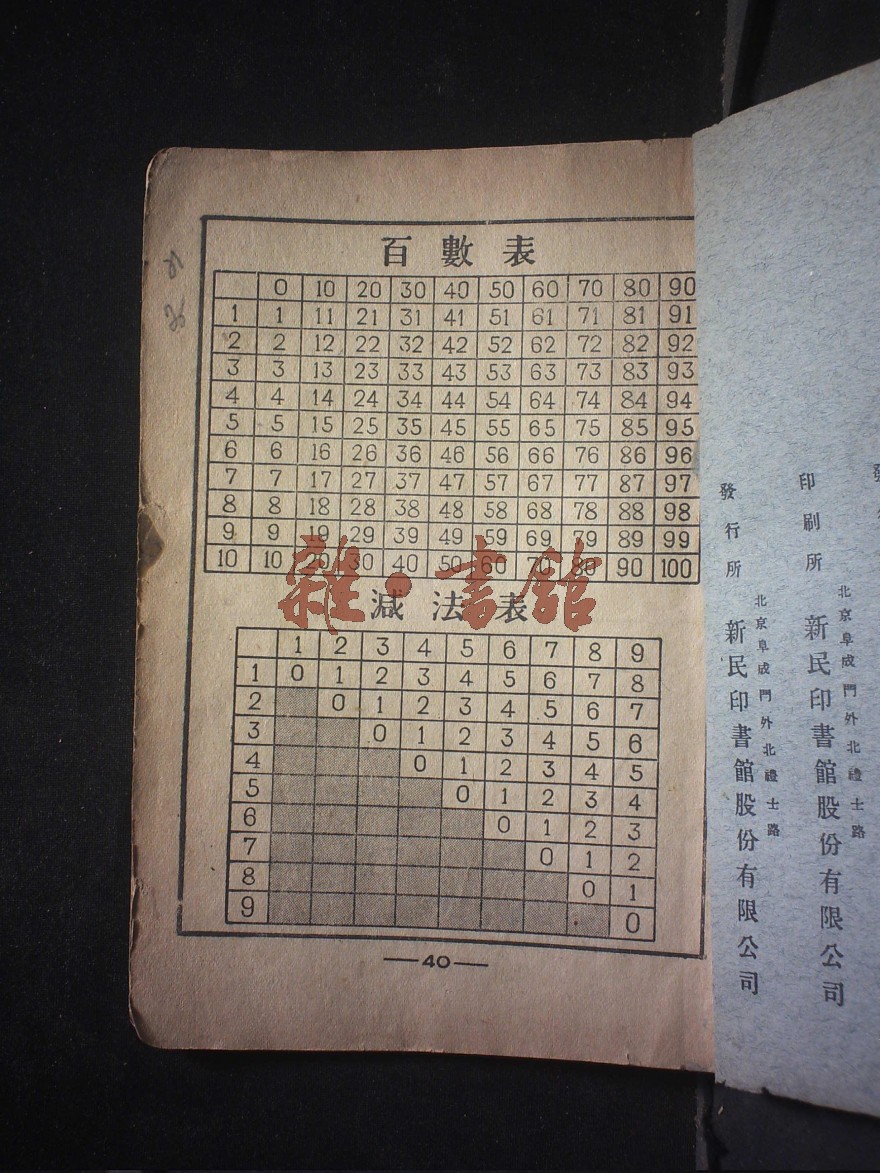 百數表
0 10 20 30 40 50 60 70 80 90
1 1 11 21 31 41 51 61 71 81 91
2 2 12 22 32 42 52 62 72 82 92
3 3 13 23 33 43 53 63 73 83 93
4 4 14 24 34 44 54 64 74 84 94
5 5 15 25 35 45 55 65 75 85 95
6 6 16 26 36 46 56 66 76 86 96
7 7 17 27 37 47 57 67 77 87 97
8 8 18 28 38 48 58 68 78 88 98
9 9 19 29 39 49 59 69 79 89 99
10 10 20 30 40 50 60 70 80 90 100
雜·書館
減法表
1 2 3 4 5 6 7 8 9
1 0 1 2 3 4 5 6 7 8
2 0 1 2 3 4 5 6 7
3 0 1 2 3 4 5 6
4 0 1 2 3 4 5
5 0 1 2 3 4
6 0 1 2 3
7 0 1 2
8 0 1
9 0
—40—
印刷所 新民印書館股份有限公司
北京阜成門外北禮士路
發行所 新民印書館股份有限公司
北京阜成門外北禮士路